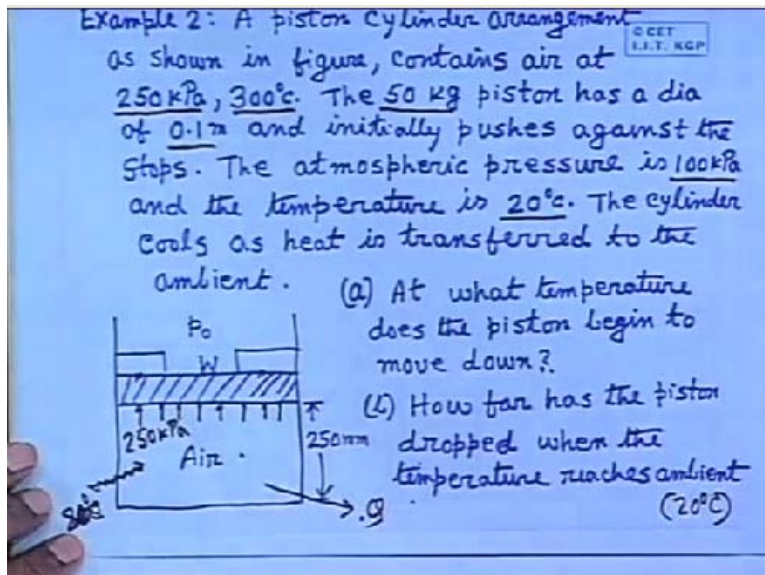 Example 2: A piston cylinder arrangement
© CET
I.I.T. KGP
as shown in figure, contains air at
250 kPa, 300°c. The 50 kg piston has a dia
of 0.1m and initially pushes against the
stops. The atmospheric pressure is 100kPa
and the temperature is 20°c. The cylinder
cools as heat is transferred to the
ambient.
(a) At what temperature
does the piston begin to
move down?
(b) How far has the piston
dropped when the
temperature reaches ambient
(20°C)
P₀
W
250kPa
Air
250mm
Q